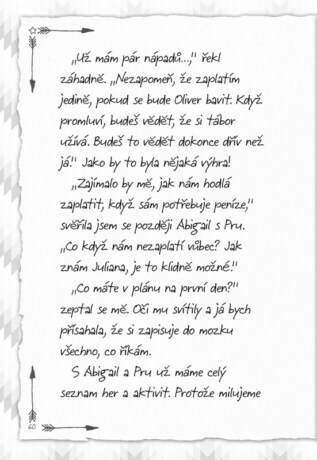 „Už mám pár nápadů...," řekl
záhadně. „Nezapomeň, že zaplatím
jedině, pokud se bude Oliver bavit. Když
promluví, budeš vědět, že si tábor
užívá. Budeš to vědět dokonce dřív než
já." Jako by to byla nějaká výhra!
„Zajímalo by mě, jak nám hodlá
zaplatit, když sám potřebuje peníze,"
svěřila jsem se později Abigail s Pru.
„Co když nám nezaplatí vůbec? Jak
znám Juliana, je to klidně možné."
„Co máte v plánu na první den?"
zeptal se mě. Oči mu svítily a já bych
přísahala, že si zapisuje do mozku
všechno, co říkám.
S Abigail a Pru už máme celý
seznam her a aktivit. Protože milujeme
60